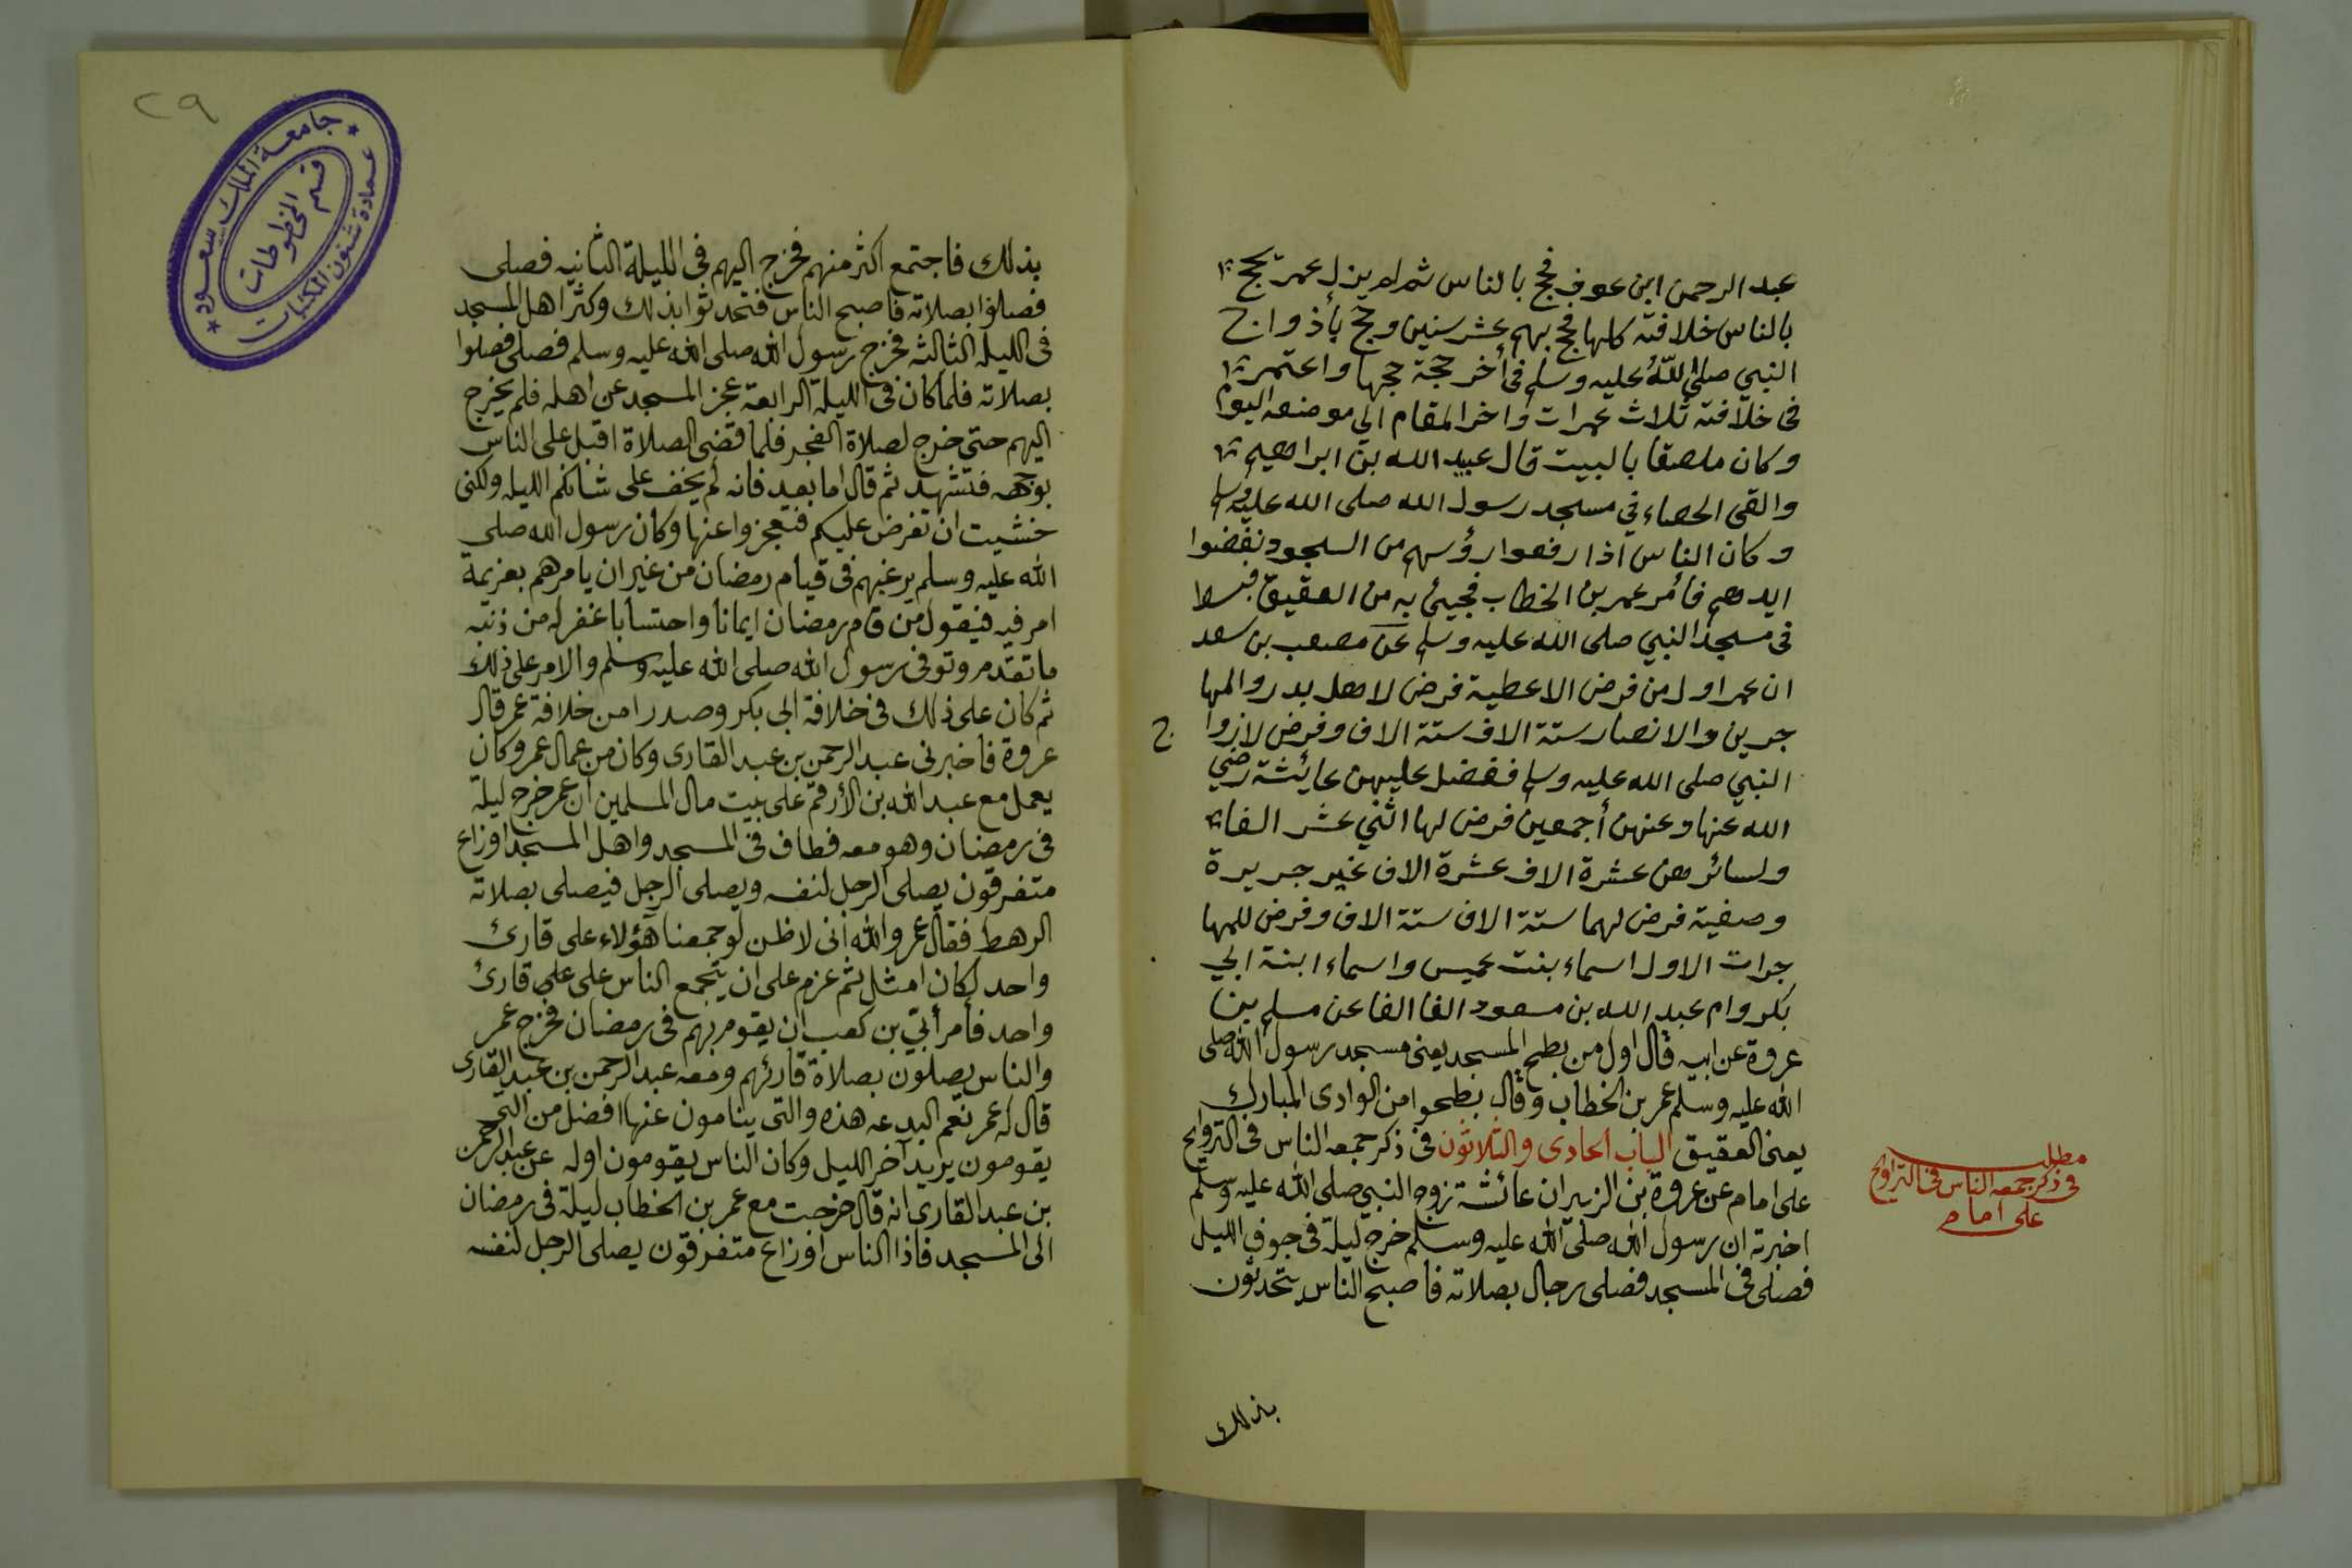 عبد الرحمن ابن عوف فحج بالناس ثم لم يزل عمر يحج
بالناس خلافته كلها فحج بهم عشر سنين وحج بأذواج
النبي صلى اللّٰه عليه وسلم في أخر حجة حجها واعتمر
في خلافته ثلاث عمرات واخر المقام الي موضعه اليوم
وكان ملصقا بالبيت قال عبيد الله بن ابراهيم
والقى الحصاء في مسجد رسول الله صلى الله عليه وسلم
وكان الناس اذا رفعوا رؤسهم من السجود نفضوا
ايدهم فأمر عمر بن الخطاب فجيئ به من العقيق فبسط
في مسجد النبي صلى الله عليه وسلم عن مصعب بن سعد
ان عمر اول من فرض الاعطية فرض لاهل بدر والمها
جرين والانصار ستة الاف ستة الاف وفرض لازوا
ج
النبي صلى الله عليه وسلم ففضل عليهن عايئشة رضي
الله عنها وعنهن أجمعين فرض لها اثني عشر الفا
ولسائرهن عشرة الاف عشرة الاف غير جريرة
وصفية فرض لهما ستة الاف ستة الاف وفرض للمها
جرات الاول اسماء بنت عميس واسماء ابنة ابي
بكر وام عبد الله بن مسعود الفا الفا عن مسلم بن
عروة عن ابيه قال اول من بطح المسجد يعنى مسجد رسول الله صلى
الله عليه وسلم عمر بن الخطاب وقال بطحوا من الوادى المبارك
يعنى العقيق الباب الحادى والثلاثون في ذكر جمعه الناس في التروايح
على امام عن عروة بن الزبير ان عائشة زوج النبي صلى الله عليه وسلم
اخبرته ان رسول الله صلى الله عليه وسلم خرج ليلة في جوف الليل
فصلى في المسجد فصلى رجال بصلاته فأصبح الناس يتحدثون
بذلك
مطلب
في ذكر جمعه الناس في التراويح
على امام
٢٩
جامعة الملك سعود
عمادة شئون المكتبات
قسم المخطوطات
بذلك فاجتمع اكثر منهم فخرج اليهم فى الليلة الثانيه فصلى
فصلوا بصلاته فاصبح الناس فتحدثوا بذلك وكثر اهل المسجد
فى الليله الثالثه فخرج رسول الله صلى الله عليه وسلم فصلى فصلوا
بصلاته فلما كان فى الليلة الرابعة عجز المسجد عن اهله فلم يخرج
اليهم حتى خرج لصلاة الفجر فلما قضى الصلاة اقبل على الناس
بوجهه فتشهد ثم قال اما بعد فانه لم يخف على شانكم الليله ولكنى
خشيت ان تفرض عليكم فتعجزوا عنها وكان رسول الله صلى
الله عليه وسلم يرغبهم فى قيام رمضان من غير ان يامرهم بعزيمة
امر فيه فيقول من قام رمضان ايمانا واحتسابا غفر له من ذنبه
ما تقدم وتوفى رسول الله صلى الله عليه وسلم والامر على ذلك
ثم كان على ذلك فى خلافة ابى بكر وصدرا من خلافة عمر قال
عروة فاخبرنى عبد الرحمن بن عبد القارى وكان من عمال عمر وكان
يعمل مع عبد الله بن الأرقم على بيت مال المسلمين ان عمر خرج ليلة
فى رمضان وهو معه فطاف فى المسجد واهل المسجد اوزاع
متفرقون يصلى الرجل لنفسه ويصلى الرجل فيصلى بصلاته
الرهط فقال عمر والله انى لاظن لو جمعنا هؤلاء على قارئ
واحد لكان امثل ثم عزم على ان يتجمع الناس على على قارئ
واحد فأمر أبيّ بن كعب ان يقوم بهم فى رمضان فخرج عمر
والناس يصلون بصلاة قارئهم ومعه عبد الرحمن بن عبد القارى
قال له عمر نعم البدعه هذه والتى ينامون عنها افضل من التى
يقومون يريد آخر الليل وكان الناس يقومون اوله عن عبد الرحمن
بن عبد القارى انه قال خرجت مع عمر بن الخطاب ليلة فى رمضان
الى المسجد فاذا الناس اوزاع متفرقون يصلى الرجل لنفسه